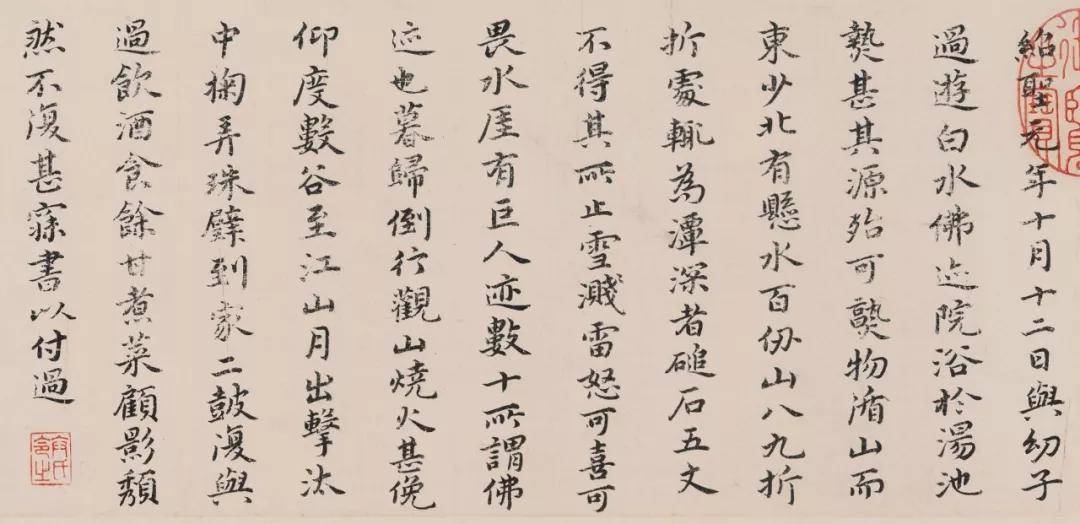 紹聖元年十月十二日與幼子
過遊白水佛迹院浴於湯池
熱甚其源殆可熟物循山而
東少北有懸水百仞山八九折
折處輒為潭深者磓石五丈
不得其所止雪濺雷怒可喜可
畏水厓有巨人迹數十所謂佛
迹也暮歸倒行觀山燒火甚俛
仰度數谷至江山月出擊汰
中掬弄珠璧到家二鼓復與
過飲酒食餘甘煮菜顧影頹
然不復甚寐書以付過